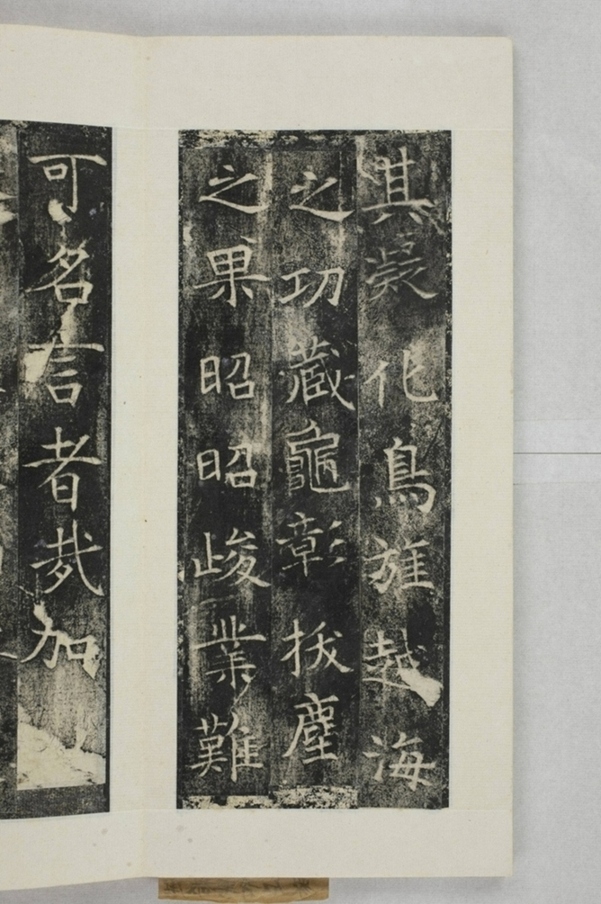 其凝化鳥旌越海
之功藏龜彰拔塵
之果昭昭峻業難
可名言者㢤加